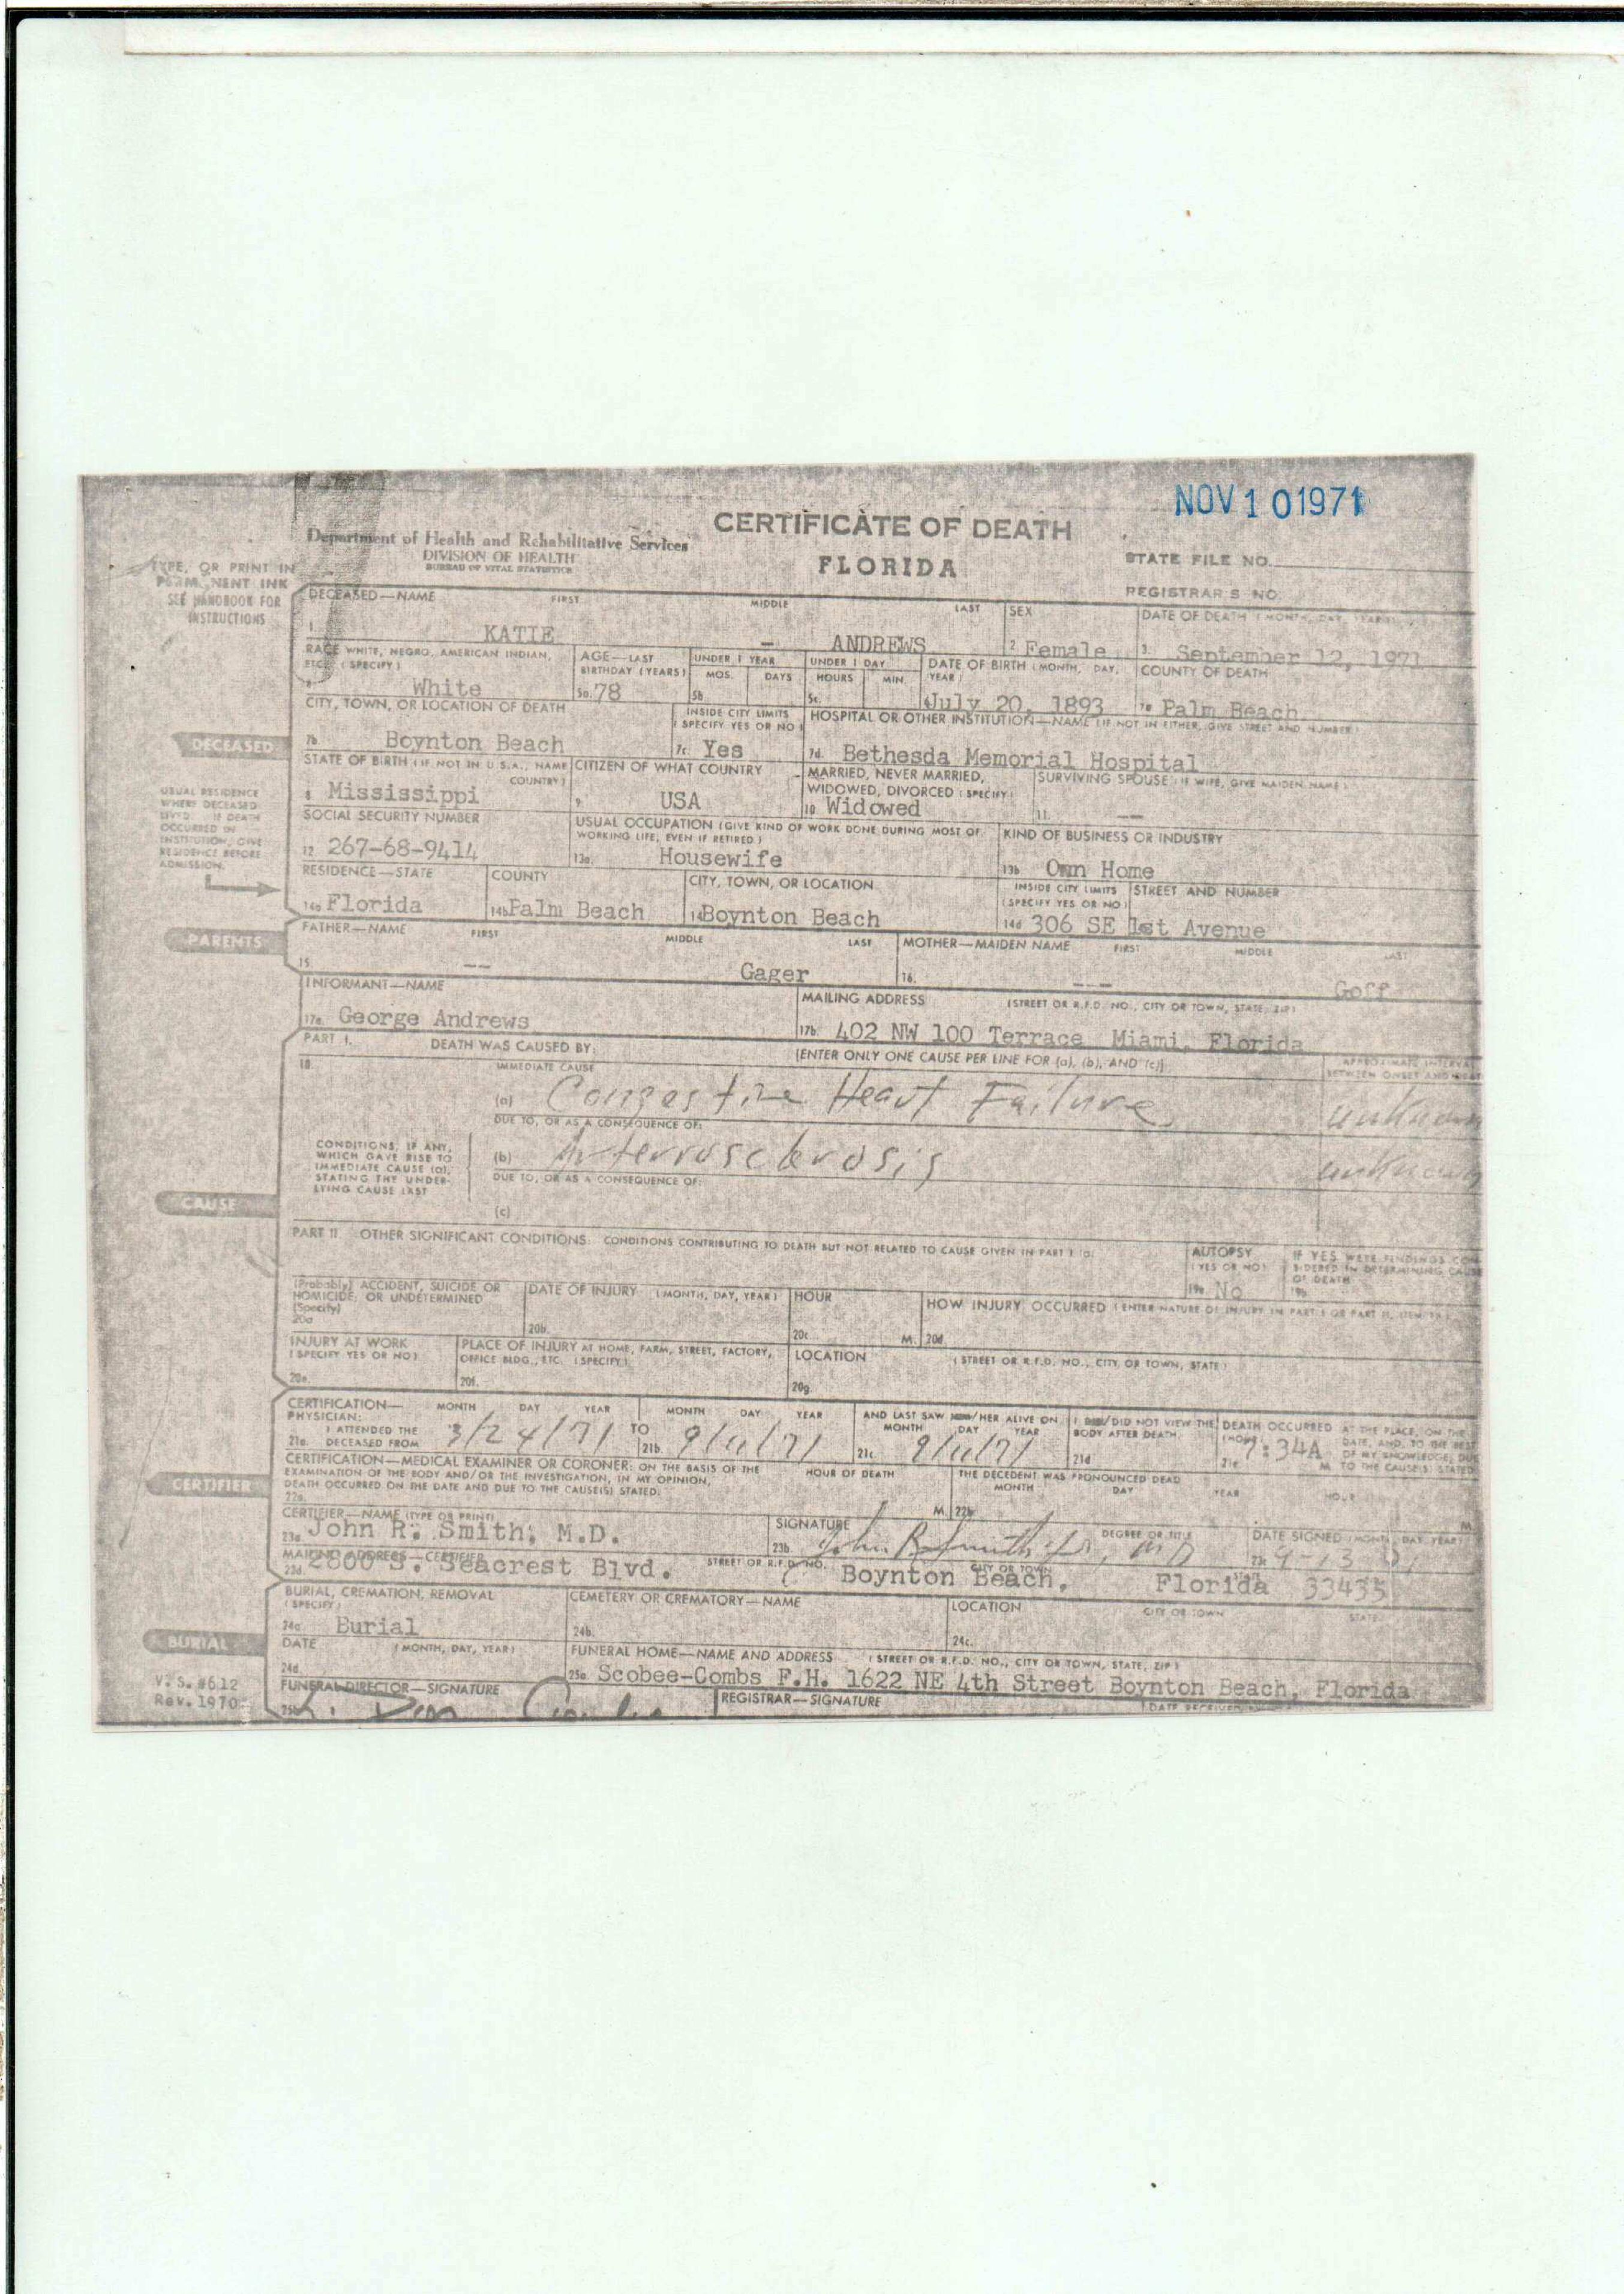 NOV 1 0 1971
CERTIFICATE OF DEATH
FLORIDA
Department of Health and Rehabilitative Services
DIVISION OF HEALTH
BUREAU OF VITAL STATISTICS
STATE FILE NO.
REGISTRAR'S NO.
TYPE, OR PRINT IN
PERMANENT INK
SEE HANDBOOK FOR
INSTRUCTIONS
DECEASED—NAME FIRST MIDDLE LAST SEX DATE OF DEATH (MONTH, DAY, YEAR)
1. KATIE – ANDREWS 2. Female 3. September 12, 1971
RACE WHITE, NEGRO, AMERICAN INDIAN, ETC. (SPECIFY) AGE—LAST BIRTHDAY (YEARS) UNDER 1 YEAR MOS. DAYS UNDER 1 DAY HOURS MIN. DATE OF BIRTH (MONTH, DAY, YEAR) COUNTY OF DEATH
White 5a. 78 5b. 5c. July 20, 1893 7a. Palm Beach
CITY, TOWN, OR LOCATION OF DEATH INSIDE CITY LIMITS (SPECIFY YES OR NO) HOSPITAL OR OTHER INSTITUTION—NAME (IF NOT IN EITHER, GIVE STREET AND NUMBER)
DECEASED
7b. Boynton Beach 7c. Yes 7d. Bethesda Memorial Hospital
STATE OF BIRTH (IF NOT IN U.S.A., NAME COUNTRY) CITIZEN OF WHAT COUNTRY MARRIED, NEVER MARRIED, WIDOWED, DIVORCED (SPECIFY) SURVIVING SPOUSE (IF WIFE, GIVE MAIDEN NAME)
8. Mississippi 9. USA 10. Widowed 11. --
USUAL RESIDENCE
WHERE DECEASED
LIVED. IF DEATH
OCCURRED IN
INSTITUTION, GIVE
RESIDENCE BEFORE
ADMISSION.
SOCIAL SECURITY NUMBER USUAL OCCUPATION (GIVE KIND OF WORK DONE DURING MOST OF WORKING LIFE, EVEN IF RETIRED) KIND OF BUSINESS OR INDUSTRY
12. 267-68-9414 13a. Housewife 13b. Own Home
RESIDENCE—STATE COUNTY CITY, TOWN, OR LOCATION INSIDE CITY LIMITS (SPECIFY YES OR NO) STREET AND NUMBER
14a. Florida 14b. Palm Beach 14 Boynton Beach 14d. 306 SE 1st Avenue
PARENTS
FATHER—NAME FIRST MIDDLE LAST MOTHER—MAIDEN NAME FIRST MIDDLE LAST
15. -- Gager 16. --- Goff
INFORMANT—NAME MAILING ADDRESS (STREET OR R.F.D. NO., CITY OR TOWN, STATE, ZIP)
17a. George Andrews 17b. 402 NW 100 Terrace Miami, Florida
PART I. DEATH WAS CAUSED BY: (ENTER ONLY ONE CAUSE PER LINE FOR (a), (b), AND (c)) APPROXIMATE INTERVAL
18. IMMEDIATE CAUSE BETWEEN ONSET AND
(a) Congestive Heart Failure unknown
DUE TO, OR AS A CONSEQUENCE OF:
CONDITIONS, IF ANY,
WHICH GAVE RISE TO
IMMEDIATE CAUSE (a),
STATING THE UNDER-
LYING CAUSE LAST
(b) Arterrosclerosis unknown
DUE TO, OR AS A CONSEQUENCE OF:
CAUSE
(c)
PART II OTHER SIGNIFICANT CONDITIONS: CONDITIONS CONTRIBUTING TO DEATH BUT NOT RELATED TO CAUSE GIVEN IN PART I (a) AUTOPSY (YES OR NO) IF YES WERE FINDINGS CON-
SIDERED IN DETERMINING CAUSE
OF DEATH
19a. No 19b.
(Probably) ACCIDENT, SUICIDE OR
HOMICIDE, OR UNDETERMINED
(Specify)
20a DATE OF INJURY (MONTH, DAY, YEAR) 20b. HOUR 20c. M. HOW INJURY OCCURRED (ENTER NATURE OF INJURY IN PART I OR PART II, ITEM 18) 20d.
INJURY AT WORK (SPECIFY YES OR NO) PLACE OF INJURY AT HOME, FARM, STREET, FACTORY, OFFICE BLDG., ETC. (SPECIFY) LOCATION (STREET OR R.F.D. NO., CITY OR TOWN, STATE)
20e. 20f. 20g.
CERTIFICATION— MONTH DAY YEAR MONTH DAY YEAR AND LAST SAW HER ALIVE ON MONTH DAY YEAR I DID NOT VIEW THE BODY AFTER DEATH. DEATH OCCURRED AT THE PLACE, ON THE
PHYSICIAN: (HOUR) DATE, AND, TO THE BEST
I ATTENDED THE OF MY KNOWLEDGE, DUE
21a. DECEASED FROM 3/24/71 TO 21b. 9/11/71 21c. 9/11/71 21d. 21e. 7:34A M. TO THE CAUSE(S) STATED
CERTIFICATION—MEDICAL EXAMINER OR CORONER: ON THE BASIS OF THE EXAMINATION OF THE BODY AND/OR THE INVESTIGATION, IN MY OPINION, DEATH OCCURRED ON THE DATE AND DUE TO THE CAUSE(S) STATED. HOUR OF DEATH THE DECEDENT WAS PRONOUNCED DEAD MONTH DAY YEAR HOUR
CERTIFIER
22a. M. 22b. M.
CERTIFIER—NAME (TYPE OR PRINT) SIGNATURE DEGREE OR TITLE DATE SIGNED (MONTH, DAY, YEAR)
23a. John R. Smith, M.D. 23b. John R. Smith Jr., MD 23c. 9-13
MAILING ADDRESS—CERTIFIER STREET OR R.F.D. NO. CITY OR TOWN STATE
23d. 2800 S. Seacrest Blvd. Boynton Beach, Florida 33435
BURIAL, CREMATION, REMOVAL (SPECIFY) CEMETERY OR CREMATORY—NAME LOCATION CITY OR TOWN STATE
24a. Burial 24b. 24c.
BURIAL
DATE (MONTH, DAY, YEAR) FUNERAL HOME—NAME AND ADDRESS (STREET OR R.F.D. NO., CITY OR TOWN, STATE, ZIP)
24d. 25a. Scobee-Combs F.H. 1622 NE 4th Street Boynton Beach, Florida
V. S. #612
Rev. 1970
FUNERAL DIRECTOR—SIGNATURE REGISTRAR—SIGNATURE DATE RECEIVED
25b.